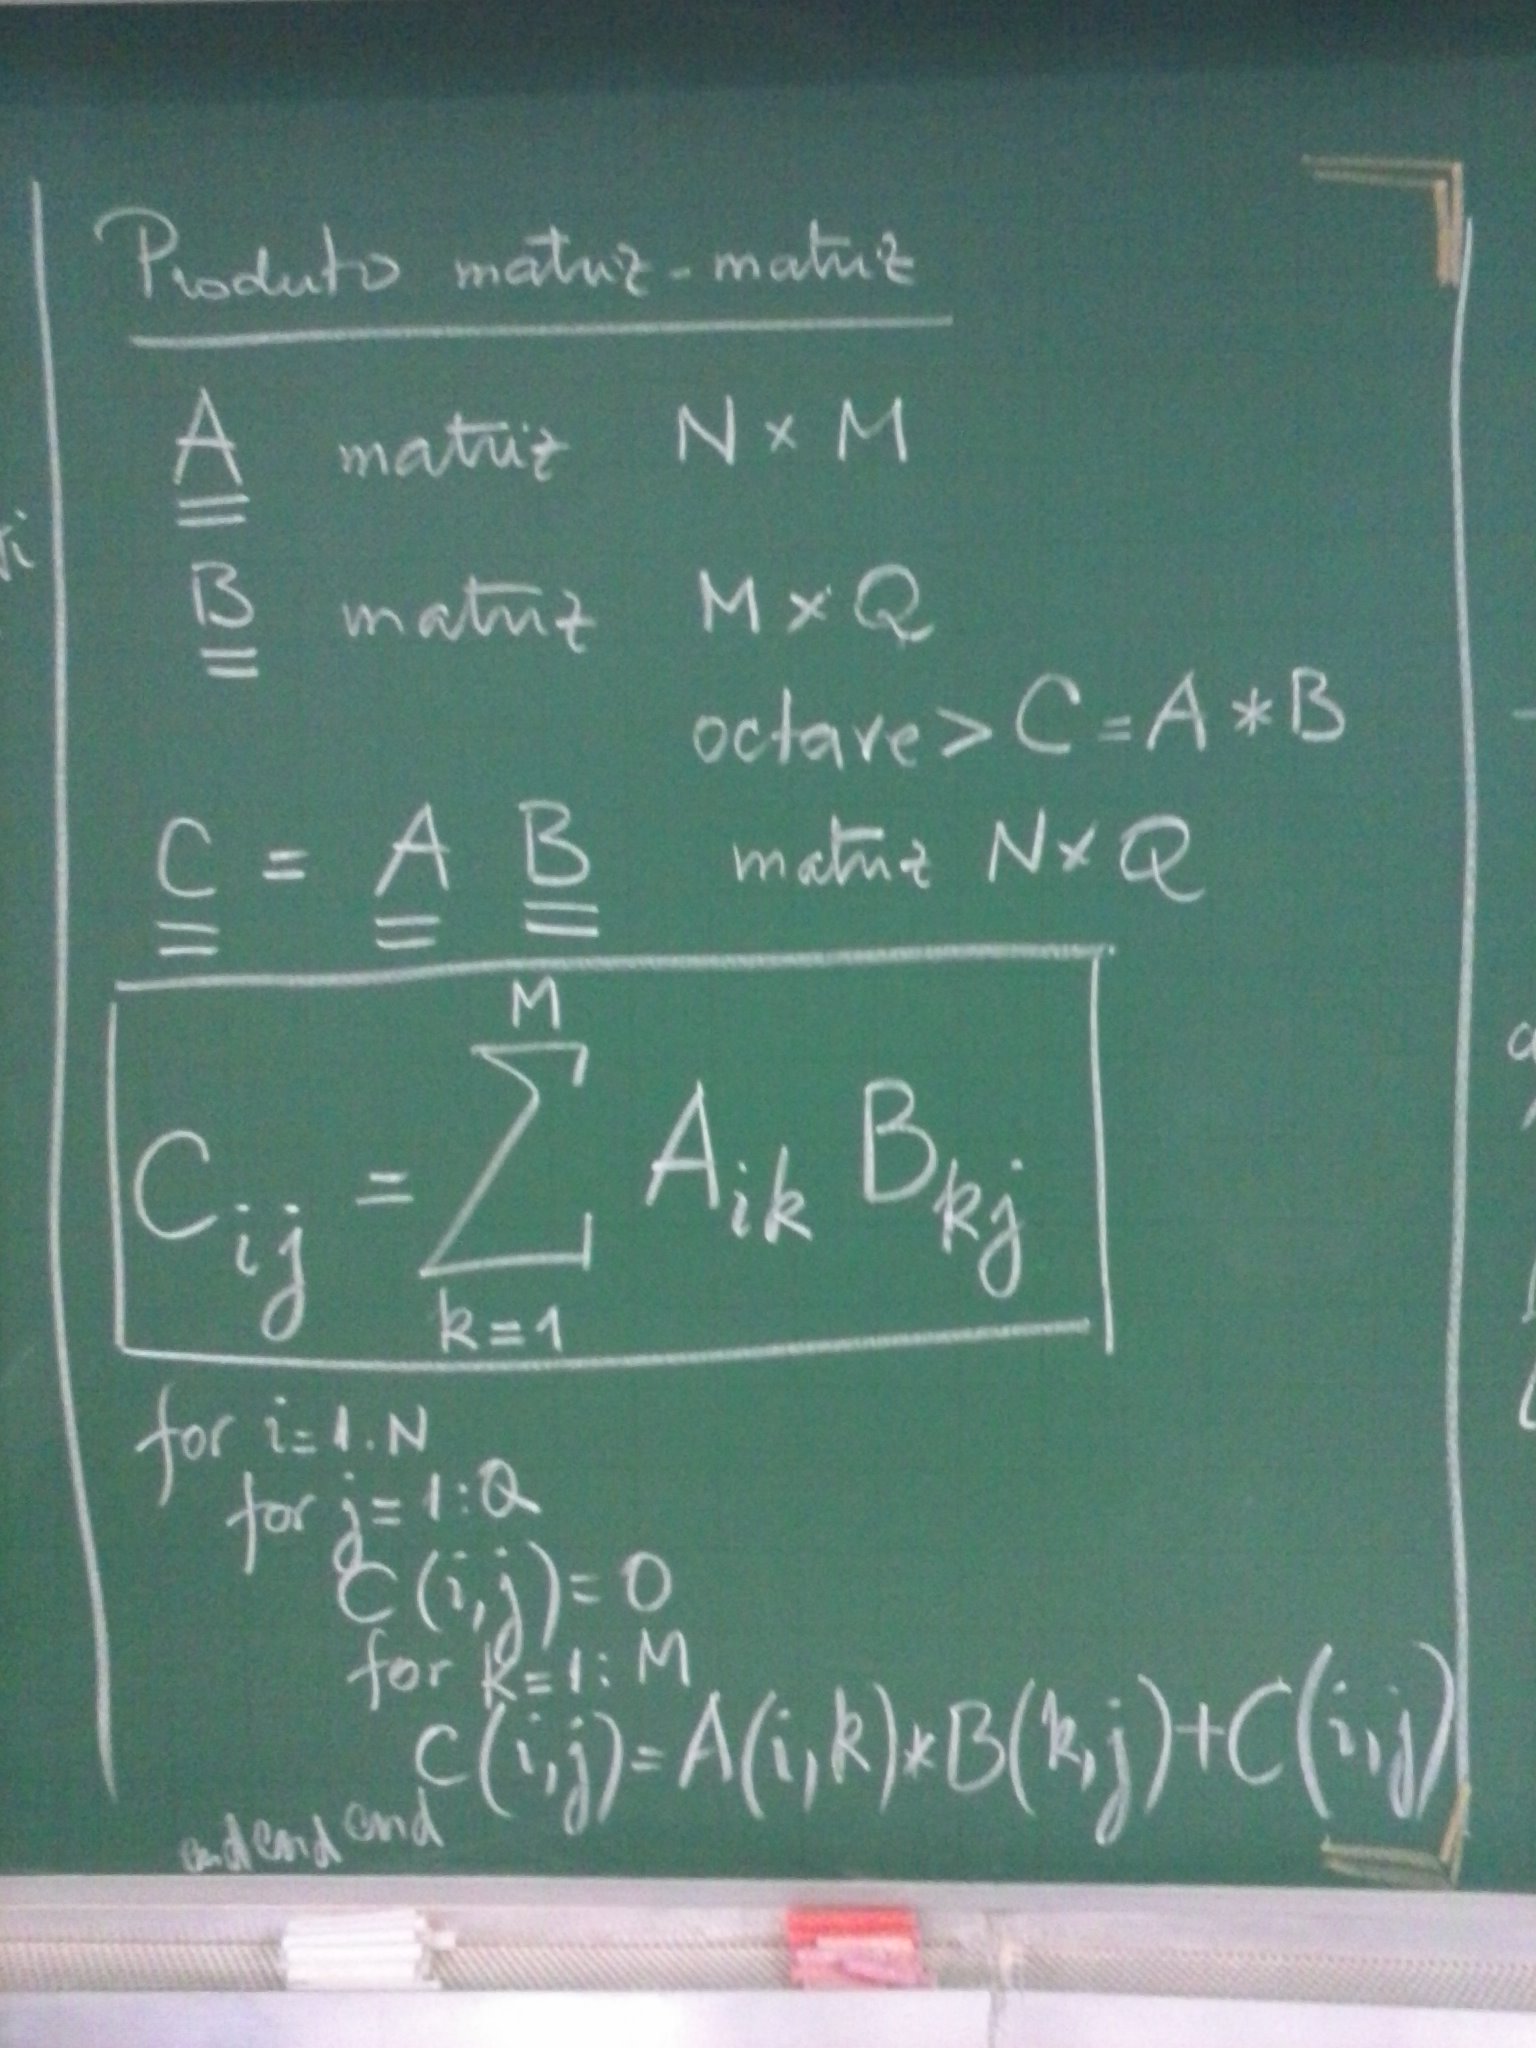 Produto matriz-matriz
A matriz N x M
B matriz M x Q
octave> C = A * B
C = A B matriz N x Q
M
C_ij = Σ A_ik B_kj
k=1
for i=1:N
for j=1:Q
C(i,j)=0
for k=1:M
C(i,j)=A(i,k)*B(k,j)+C(i,j)
end end end